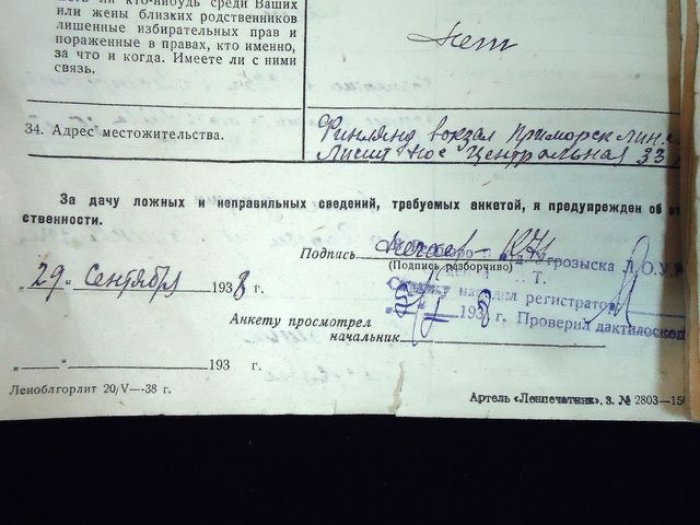 есть ли кто-нибудь среди Ваших
или жены близких родственников
лишенные избирательных прав и
пораженные в правах, кто именно,
за что и когда. Имеете ли с ними
связь.
нет
34. Адрес местожительства.
Финлянд вокзал Приморск лин.
Лисит Нос Центральная 33
За дачу ложных и неправильных сведений, требуемых анкетой, я предупрежден об от
ственности.
Подпись
(Подпись разборчиво)
Угрозыска Л.О.У.Р
„29„ Сентября 1938 г.
регистратор
193 г. Проверил дактилоскоп
Анкету просмотрел
начальник
„ “ 193 г.
Леноблгорлит 20/V—38 г.
Артель «Ленпечатник». З. № 2803—15